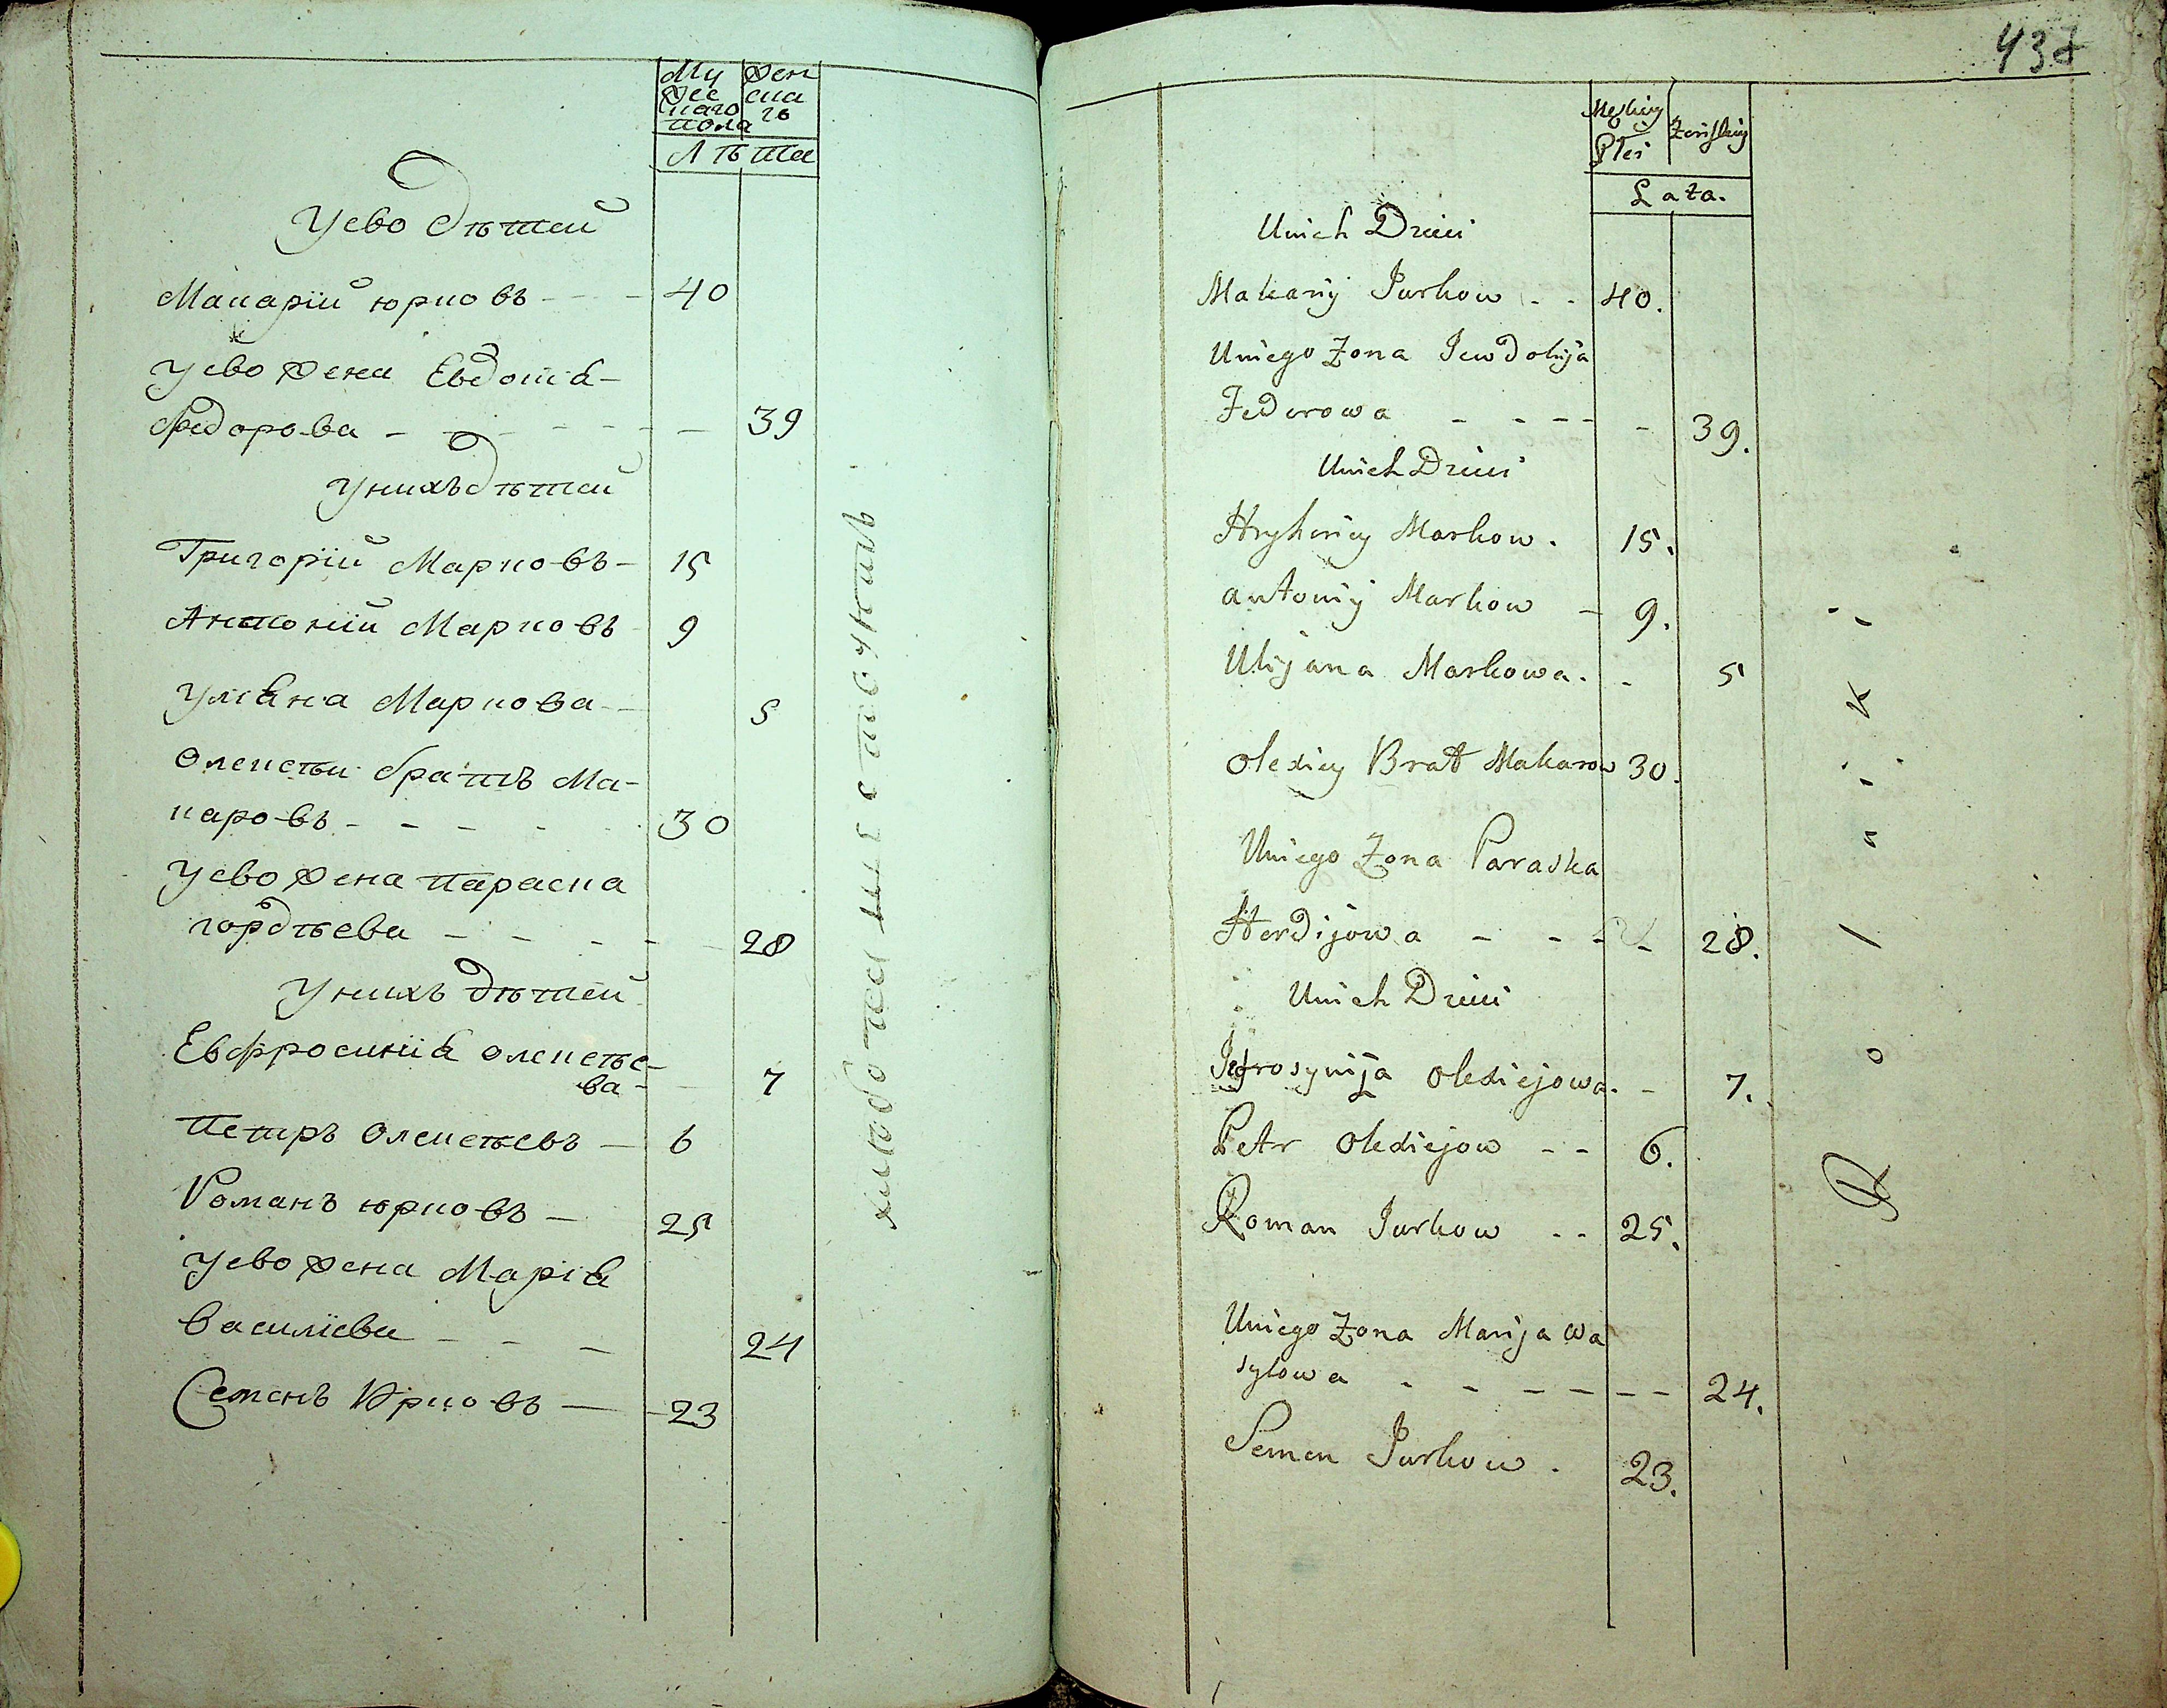 Му
жес
каго
пола
Жен
ска
го
Лѣта
Уево дѣтей
Макарїй юрковъ - - - 40
Уево жена Евдокїа
Федорова - - - - - - 39
Унихъ дѣтей
Григорїй Марковъ - 15
Антонїй Марковъ 9
Улїана Маркова - 5
Олексѣй братъ Ма-
каровъ - - - - - 30
Уево жена Параска
гордѣева - - - - - 28
Унихъ дѣтей
Евфросинїа олексѣе-
ва - 7
Петръ Олексѣевъ - 6
Романъ юрковъ - 25
Уево жена Марїа
Василїева - - - 24
Семенъ Юрковъ - 23
хлѣбопашествуютъ
437
Męskiey
Płci
Żeńskiey
Lata.
Unich Dzieci
Makaryi Jurkow - - 40.
Uniego Żona Jewdokija
Fedorowa - - - - - 39.
Unich Dzieci
Hryhoriey Markow . 15.
antoniy Markow - 9.
Ulijana Markowa . - 5
Olexiey Brat Makarow 30.
Uniego Żona Paraska
Hordijowa - - - - 28.
Unich Dzieci
Jefrosynija Olexiejowa . - 7.
Petr Olexiejow - - 6.
Roman Jurkow - - 25.
Uniego Żona Marija Wa
sylowa - - - - - - 24.
Semen Jurkow . 23.
Rolniki